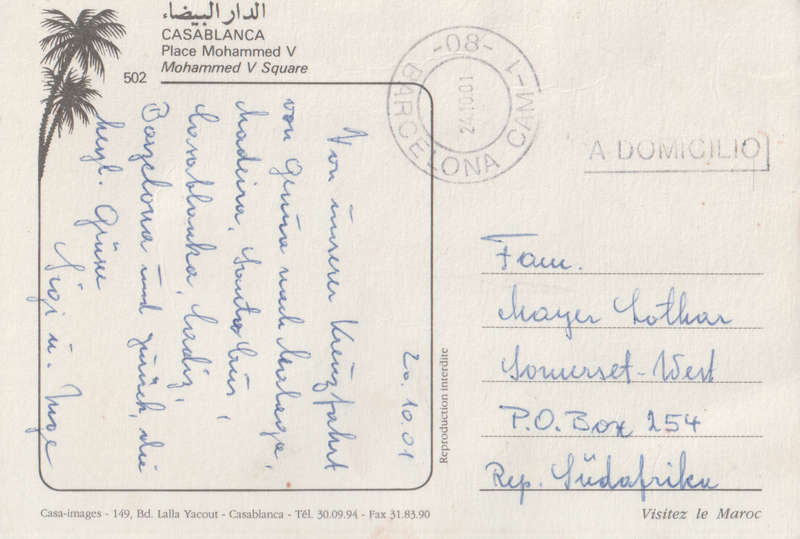 الدار البيضاء
CASABLANCA
Place Mohammed V
Mohammed V Square
502
20.10.01
Von unserer Kreuzfahrt
von Genua nach Malaga,
Madeira, Santa Cruz,
Casablanka, Cadiz,
Barzelona und zurück, die
herzl. Grüsse
Sigi u. Inge
-08-
BARCELONA CAM-1
24.10.01
A DOMICILIO
Fam.
Mayer Lothar
Somerset-West
P.O. Box 254
Rep. Südafrika
Reproduction interdite
Casa-images - 149, Bd. Lalla Yacout - Casablanca - Tél. 30.09.94 - Fax 31.83.90
Visitez le Maroc